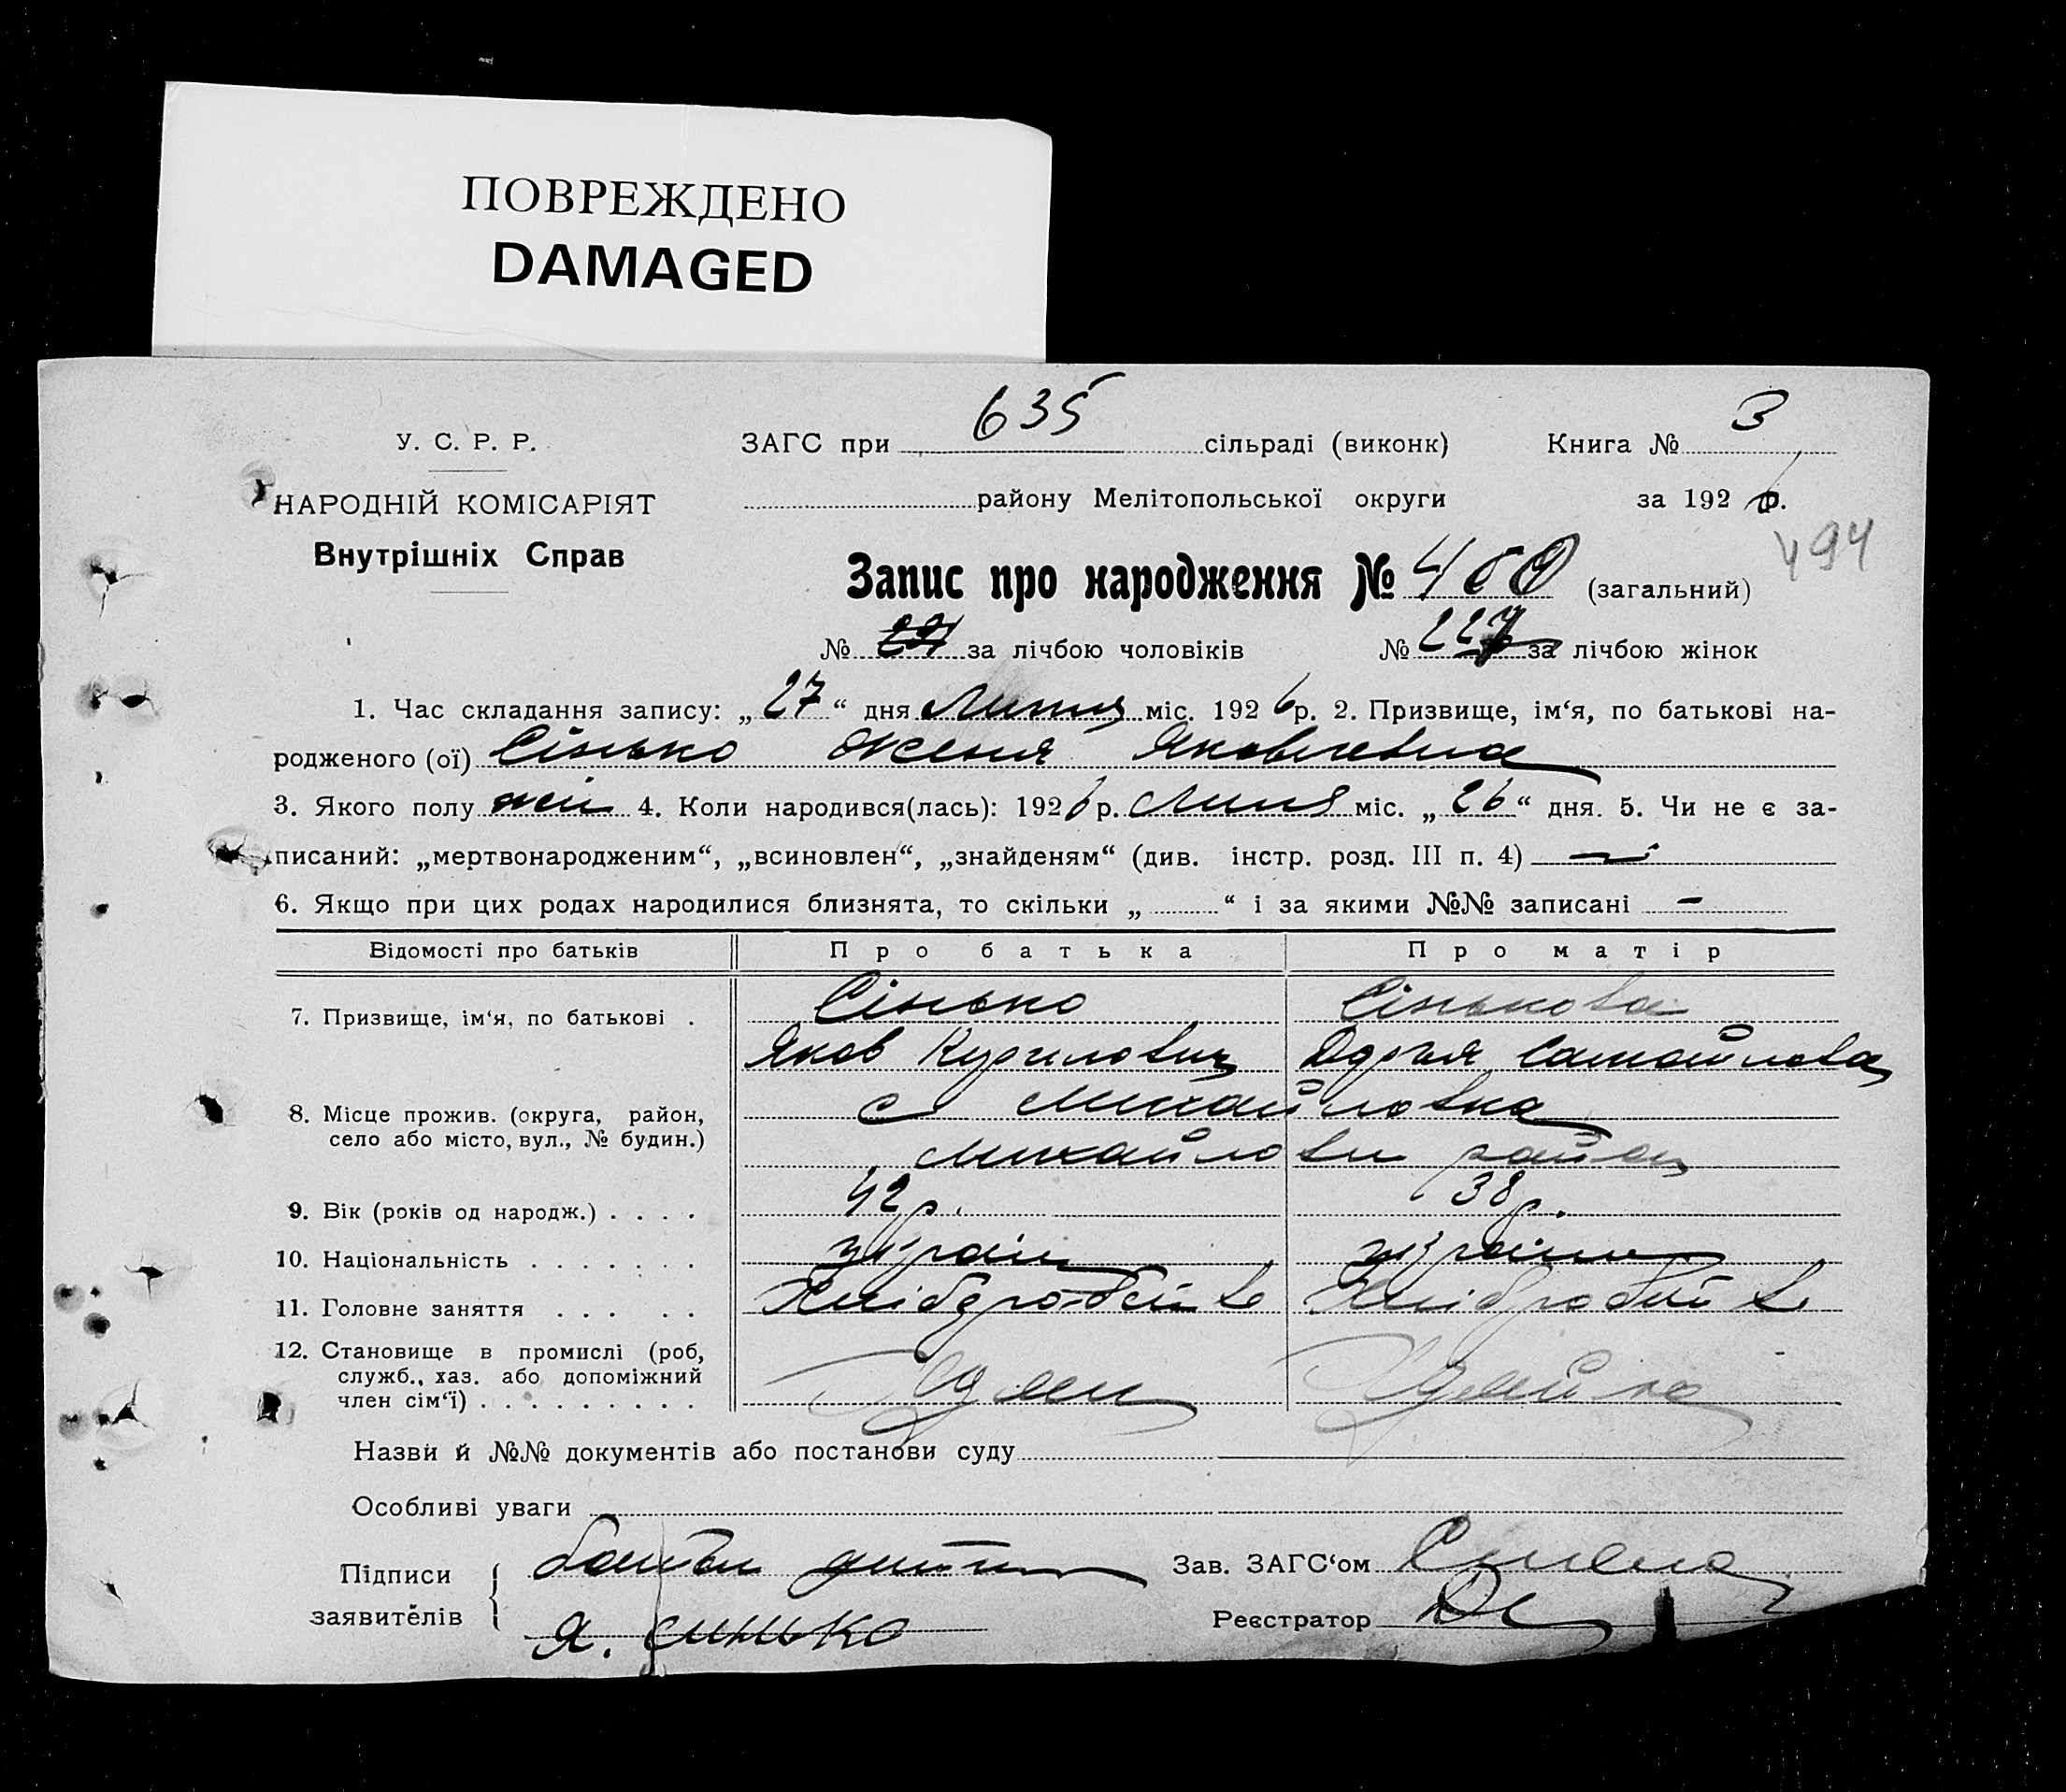 ПОВРЕЖДЕНО
DAMAGED
У. С. Р. Р.
НАРОДНІЙ КОМІСАРІЯТ
Внутрішніх Справ
ЗАГС при 635 сільраді (виконк) Книга № 3
району Мелітопольської округи за 1926 р.
494
Запис про народження № (загальний)
№ за лічбою чоловіків № 227 за лічбою жінок
1. Час складання запису: „27“ дня Липня міс. 1926 р. 2. Призвище, ім‘я, по батькові на-
родженого (ої) Сінько Женя Яковлевна
3. Якого полу жін 4. Коли народився(лась): 1926 р. Липня міс. „26“ дня. 5. Чи не є за-
писаний: „мертвонародженим“, „всиновлен“, „знайденям“ (див. інстр. розд. III п. 4) —
6. Якщо при цих родах народилися близнята, то скільки „ “ і за якими №№ записані -
Відомості про батьків Про батька Про матір
7. Призвище, ім‘я, по батькові . Сінько Сінькова
Яков Курилович Самойлова
8. Місце прожив. (округа, район, село або місто, вул., № будин.) с Михайловка
Михайлов район
9. Вік (років од народж.) . . . . 42 р. 38 р.
10. Національність . . . . . . . україн україн
11. Головне заняття . . . . .
12. Становище в промислі (роб,
служб., хаз. або допоміжний
член сім‘ї) . . . . . . . . .
Назви й №№ документів або постанови суду
Особливі уваги
Підписи заявителів батьки дитини Зав. ЗАГС‘ом
Я. Синько Реєстратор